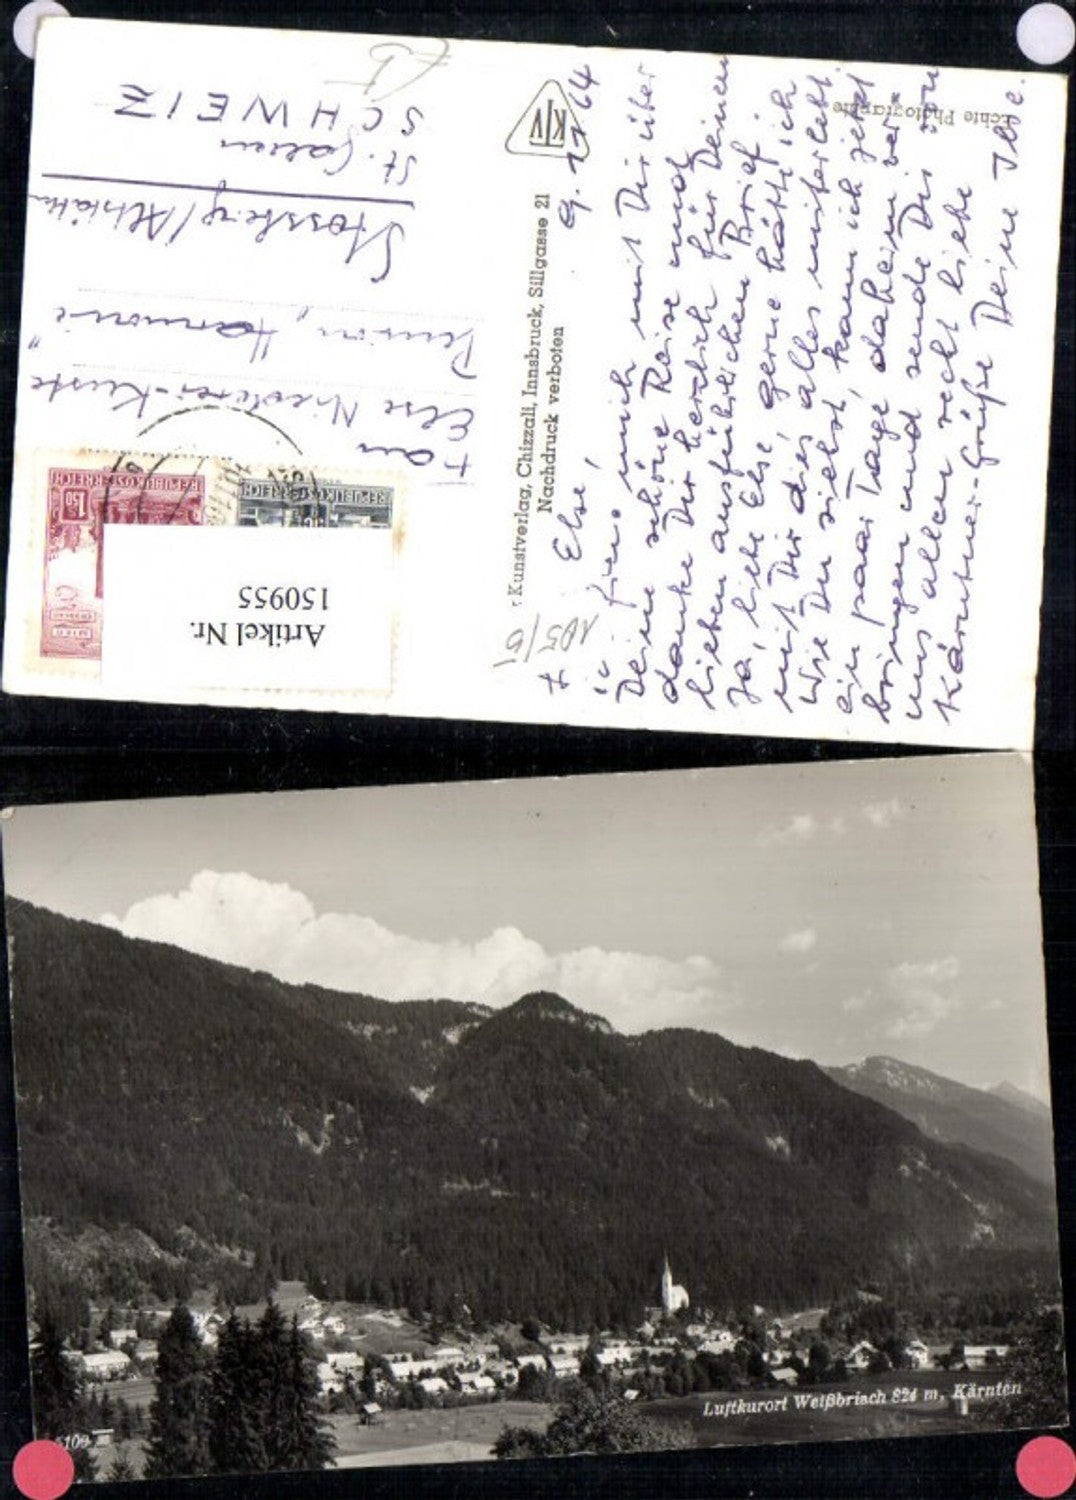 Echte Photographie
KTV
9. 11. 64
Else,
mich mit Dir über
Deine schöne Reise und
danke Dir herzlich für Deinen
lieben ausführlichen Brief.
Ja, liebe Else, gerne hätt ich
mit Dir dies alles miterlebt.
Wie Du siehst, kann ich jetzt
ein paar Tage daheim ver-
bringen und sende Dir von
uns allen recht liebe
Kärntner-Grüße Deine Ilse.
Kunstverlag, Chizzali, Innsbruck, Sillgasse 21
Nachdruck verboten
105/6
REPUBLIK ÖSTERREICH
1.50
REPUBLIK ÖSTERREICH
Artikel Nr.
150955
Frau
Else Niederer-Kuste
Pension „Harmonie"
Stossberg/Altstätten
St. Gallen
SCHWEIZ
Luftkurort Weißbriach 824 m, Kärnten